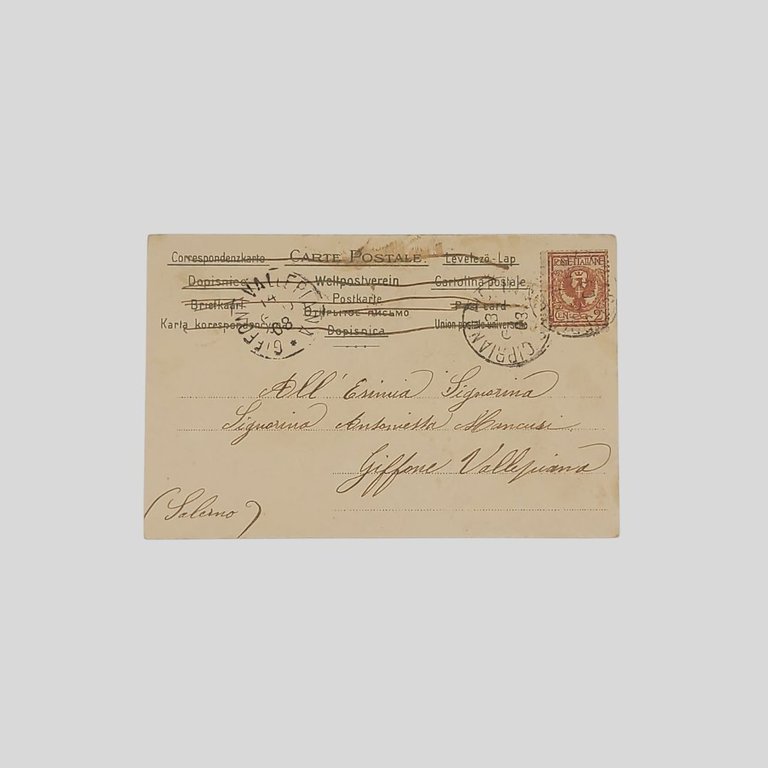 Correspondenzkarte CARTE POSTALE Levelező-Lap
Dopisnice Weltpostverein Cartolina postale
Briefkaart Postkarte Post card
Karta korespondencyjna Открытое письмо Union postale universelle
Dopisnica
GIFFONI VALLEPIANA
08
CIPRIAN
POSTE ITALIANE
All' Esimia Signorina
Signorina Antonietta Mancusi
Giffone Vallepiana
(Salerno)